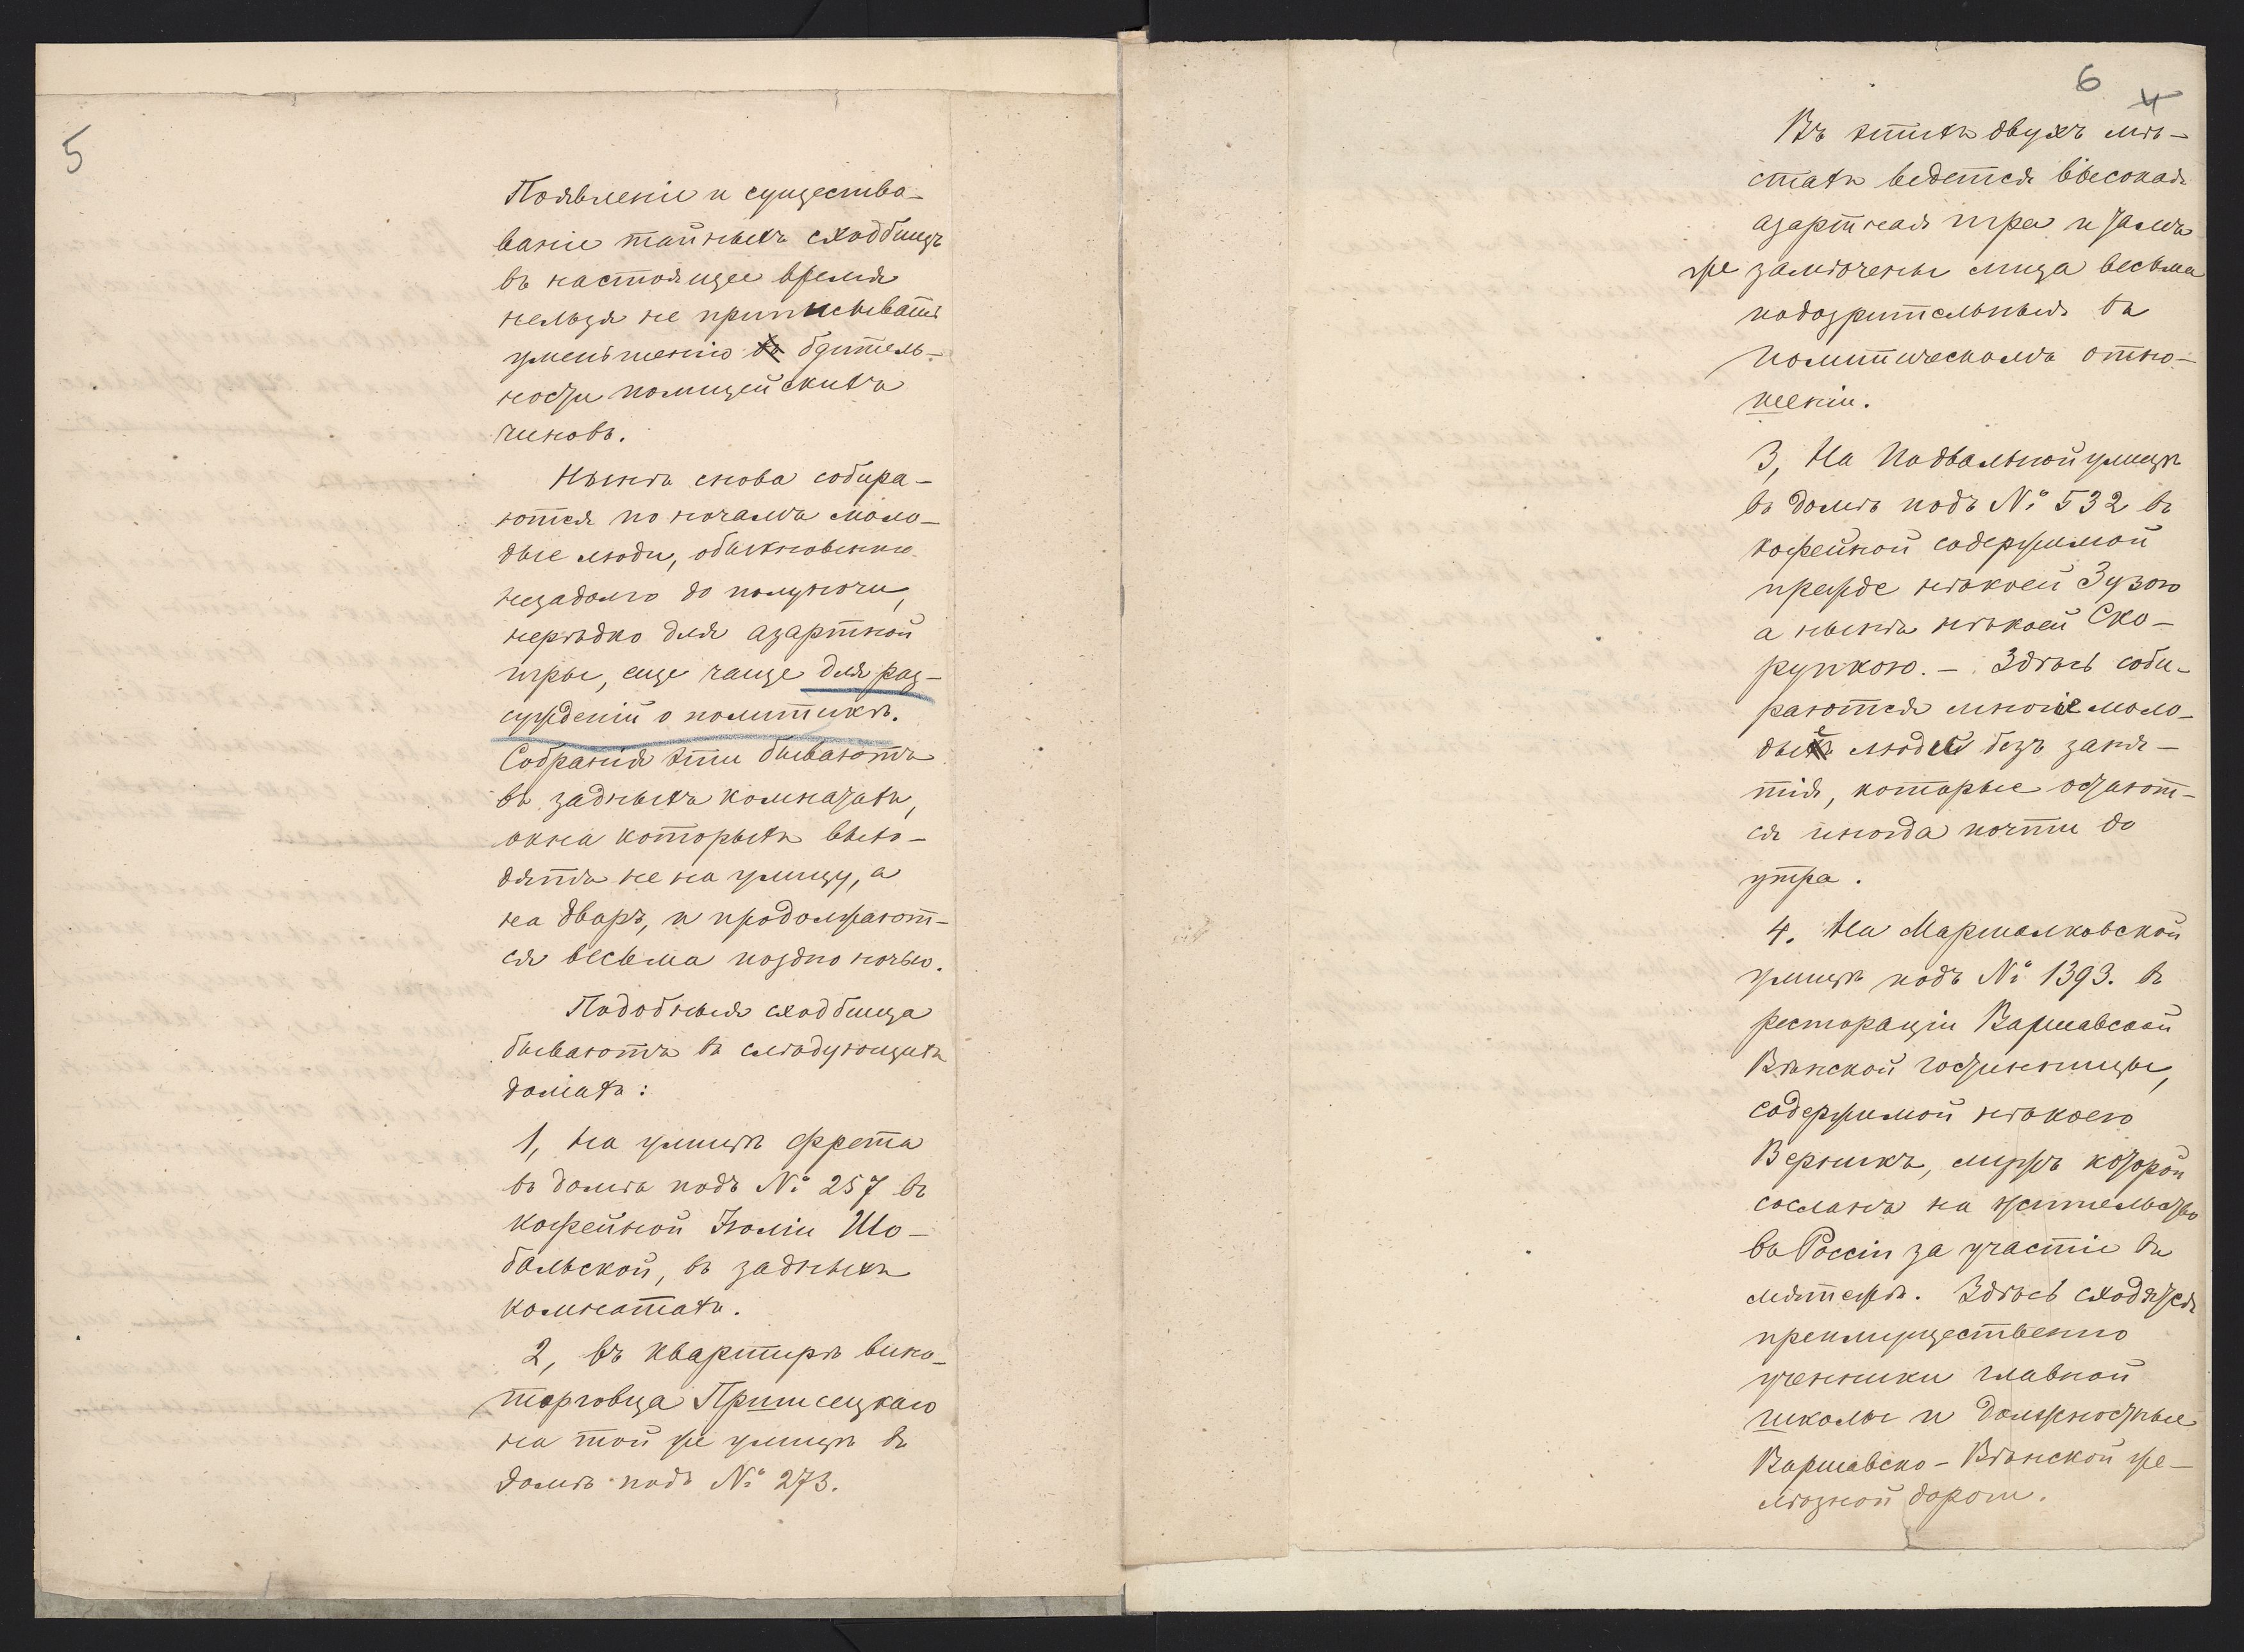 5
Появленіе и существо-
ваніе тайныхъ сходбищъ
въ настоящее время
нельзя не приписывать
уменьшенію бдитель-
ности полицейскихъ
чиновъ.
Нынѣ снова собира-
ются по ночамъ моло-
дые люди, обыкновенно
незадолго до полуночи,
нерѣдко для азартной
игры, еще чаще для раз-
сужденій о политикѣ.
Собранія эти бываютъ
въ заднихъ комнатахъ,
окна которыхъ выхо-
дятъ не на улицу, а
на дворъ, и продолжают-
ся весьма поздно ночью.
Подобныя сходбища
бываютъ въ слѣдующихъ
домахъ:
1, На улицѣ Фрета
въ домѣ подъ № 257 въ
кофейной Юліи Шо-
бальской, въ заднихъ
комнатахъ.
2, въ квартирѣ вино-
торговца Пришсецкаго
на той же улицѣ въ
домѣ подъ № 273.
6
4
Въ этихъ двухъ мѣ-
стахъ ведется высокая
азартная игра и тамъ
же замѣчены лица весьма
подозрительныя въ
политическомъ отно-
шеніи.
3, На Подвальной улицѣ
въ домѣ подъ № 532 въ
кофейной содержимой
прежде нѣкоей Зузою
а нынѣ нѣкоей Ско-
рупкою. — Здѣсь соби-
раются многіе моло-
дые люди безъ заня-
тія, которые остают-
ся иногда почти до
утра.
4. На Маршалковской
улицѣ подъ № 1393. въ
ресторации Варшавской
Вѣнской гостинницы,
содержимой нѣкоего
Верникъ, мужъ которой
сосланъ на жительство
въ Россіи за участіе въ
мятежѣ. Здѣсь сходятся
преимущественно
ученики главной
школы и должностные
Варшавско-Вѣнской же-
лѣзной дороги.